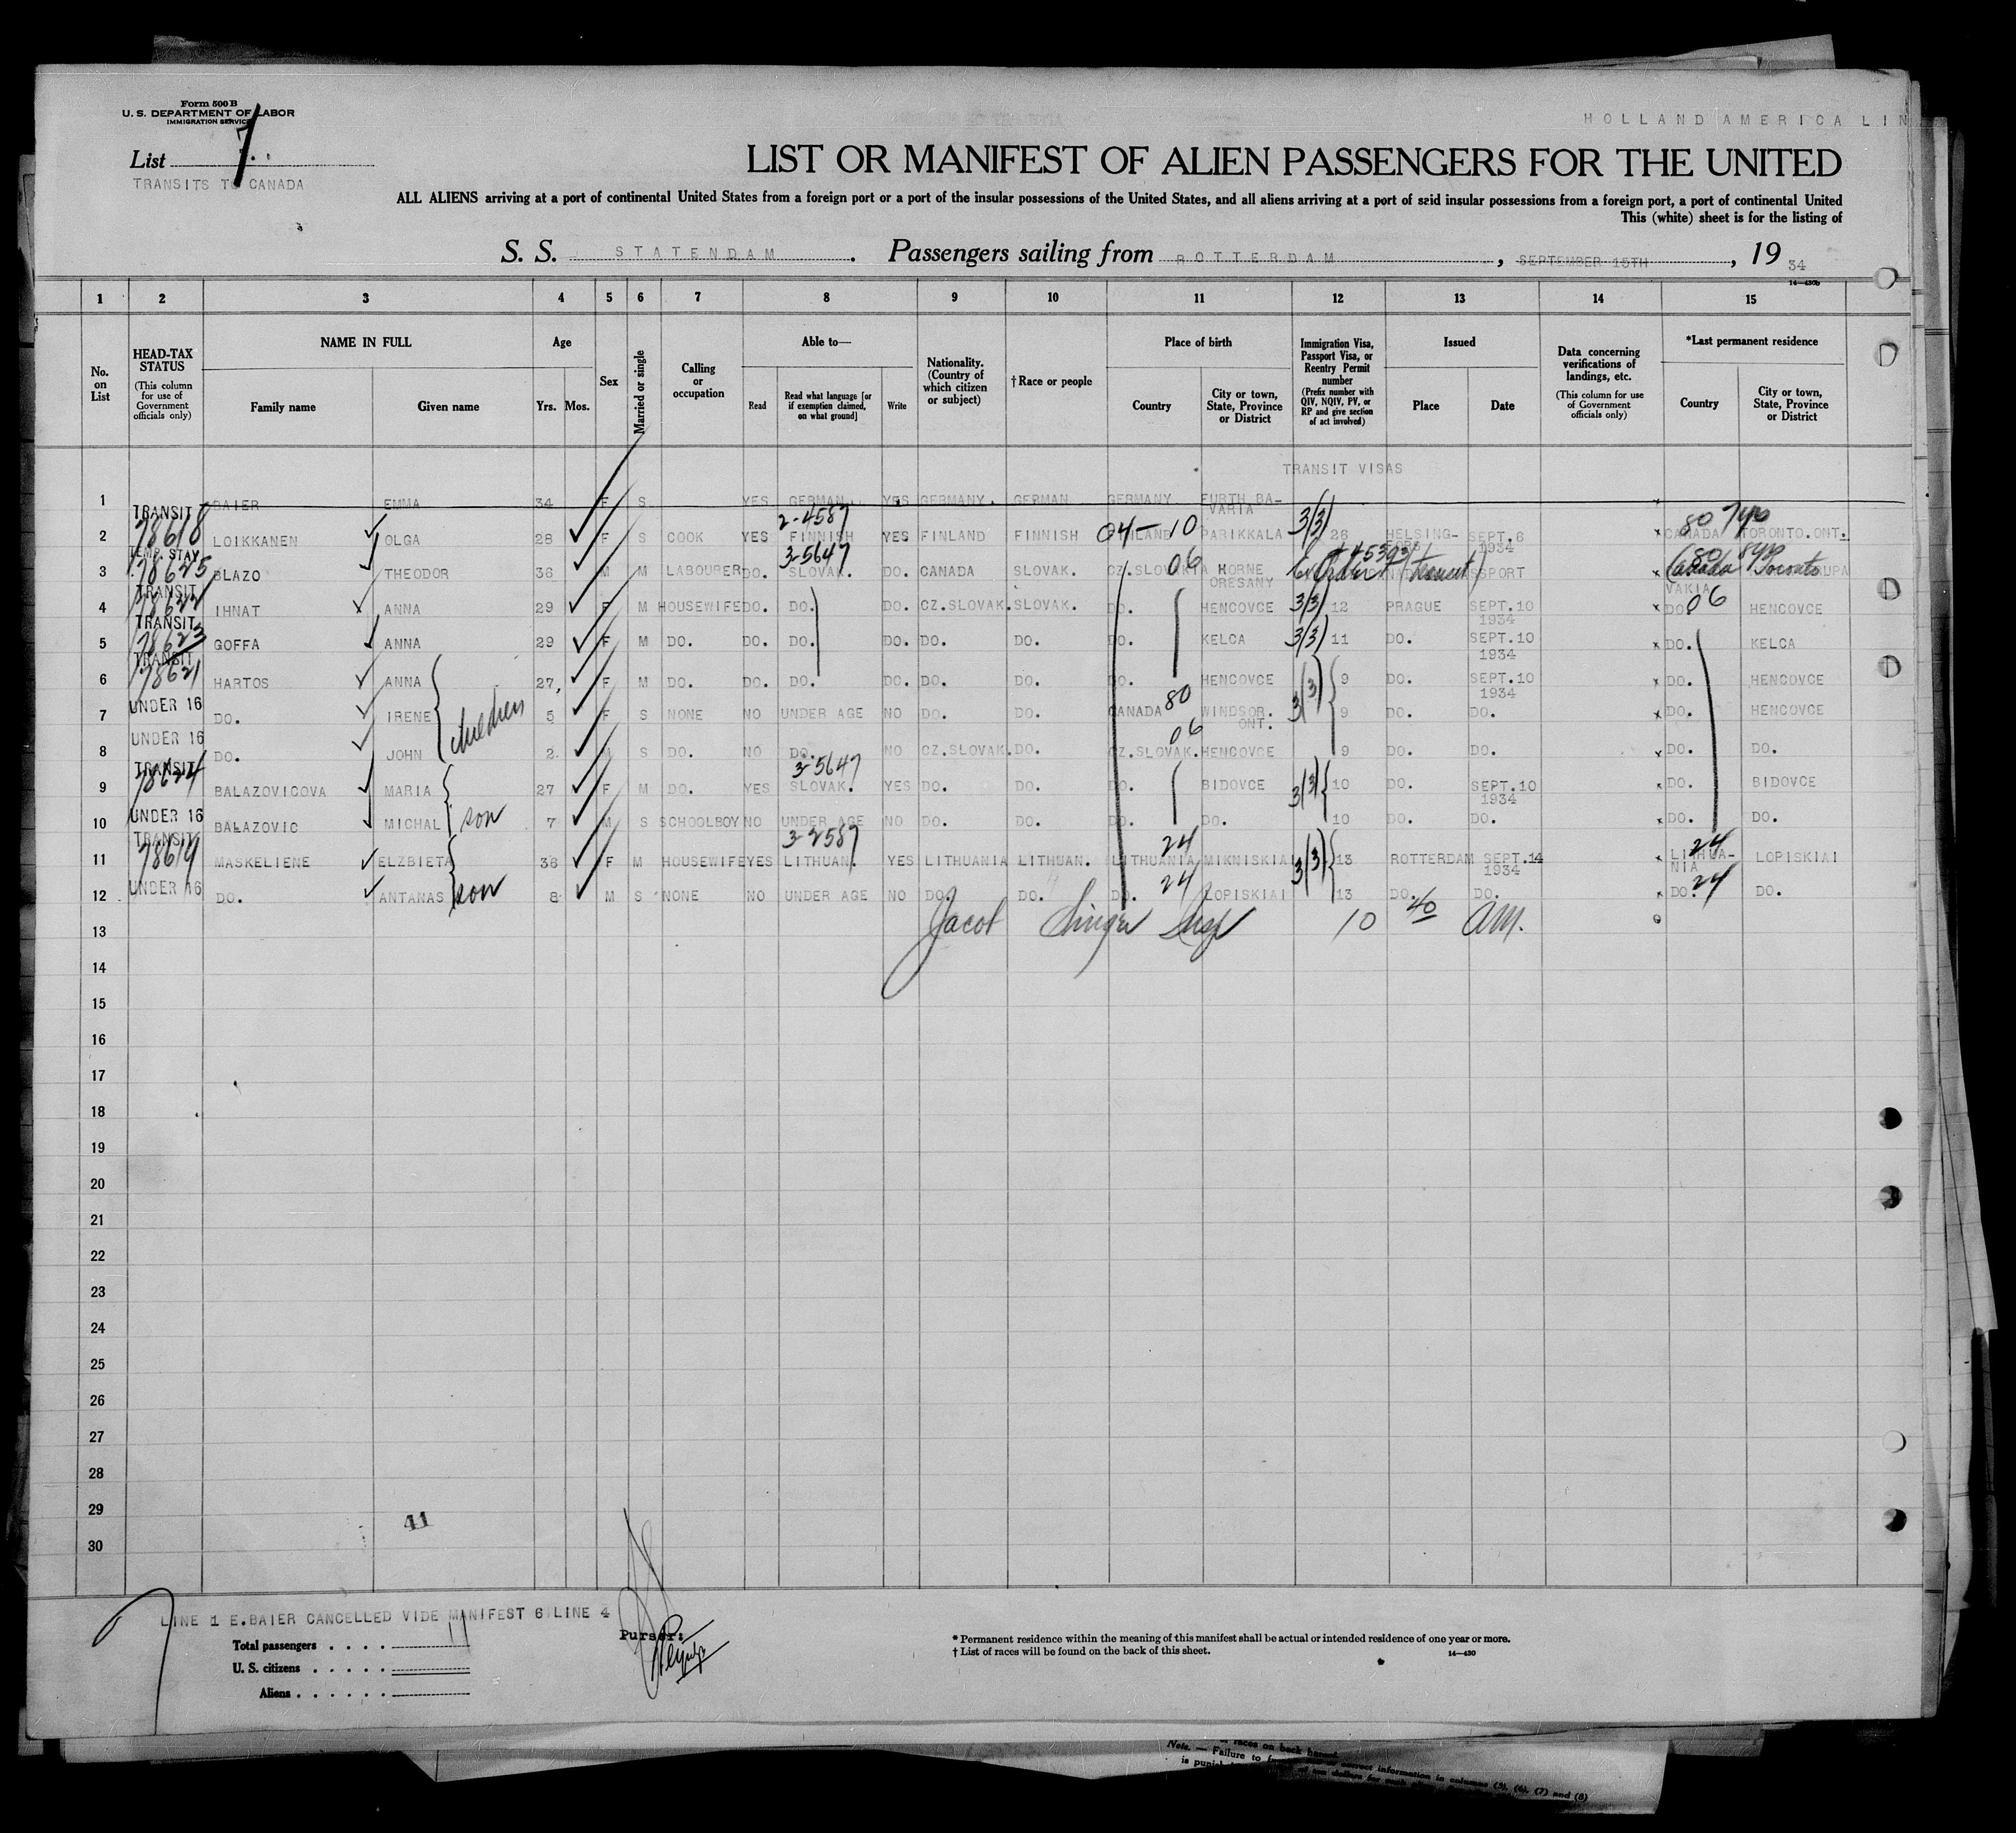 Form 500 B
U. S. DEPARTMENT OF LABOR
IMMIGRATION SERVICE
HOLLAND AMERICA LIN
List 7
TRANSITS TO CANADA
LIST OR MANIFEST OF ALIEN PASSENGERS FOR THE UNITED
ALL ALIENS arriving at a port of continental United States from a foreign port or a port of the insular possessions of the United States, and all aliens arriving at a port of said insular possessions from a foreign port, a port of continental United
This (white) sheet is for the listing of
S. S. STATENDAM. Passengers sailing from ROTTERDAM, SEPTEMBER 15TH, 19 34
14—430b
1 2 3 4 5 6 7 8 9 10 11 12 13 14 15
No. on List
HEAD-TAX STATUS (This column for use of Government officials only)
NAME IN FULL Family name Given name
Age Yrs. Mos.
Sex
Married or single
Calling or occupation
Able to— Read Read what language [or if exemption claimed, on what ground] Write
Nationality. (Country of which citizen or subject)
† Race or people
Place of birth Country City or town, State, Province or District
Immigration Visa, Passport Visa, or Reentry Permit number (Prefix number with QIV, NQIV, PV, or RP and give section of act involved)
Issued Place Date
Data concerning verifications of landings, etc. (This column for use of Government officials only)
*Last permanent residence Country City or town, State, Province or District
TRANSIT VISAS
1 BAIER EMMA 34 F S YES GERMAN. YES GERMANY. GERMAN GERMANY FURTH BAVARIA
2-4587
2 TRANSIT 78618 LOIKKANEN OLGA 28 F S COOK YES FINNISH YES FINLAND FINNISH 04-10 FINLAND PARIKKALA 3(3) 26 HELSINGFORS SEPT.6 1934 x CANADA 80 TORONTO.ONT.
3-5647
3 TEMP. STAY 78625 BLAZO THEODOR 36 M M LABOURER DO. SLOVAK. DO. CANADA SLOVAK. CZ.SLOVAKIA 06 HORNE ORESANY x Canada 80 Toronto
4 TRANSIT 78622 IHNAT ANNA 29 F M HOUSEWIFE DO. DO. DO. CZ.SLOVAK. SLOVAK. DO. HENCOVCE 3(3) 12 PRAGUE SEPT.10 1934 x DO. 06 HENCOVCE
5 TRANSIT 78623 GOFFA ANNA 29 F M DO. DO. DO. DO. DO. DO. DO. KELCA 3(3) 11 DO. SEPT.10 1934 x DO. KELCA
6 TRANSIT 78621 HARTOS ANNA 27, F M DO. DO. DO. DO. DO. DO. DO. HENCOVCE 3(3) 9 DO. SEPT.10 1934 x DO. HENCOVCE
7 UNDER 16 DO. IRENE children 5 F S NONE NO UNDER AGE NO DO. DO. CANADA 80 WINDSOR. ONT. 9 DO. DO. x DO. HENCOVCE
8 UNDER 16 DO. JOHN 2 M S DO. NO DO. NO CZ.SLOVAK. DO. CZ.SLOVAK. 06 HENCOVCE 9 DO. DO. x DO. DO.
3-5647
9 TRANSIT 78624 BALAZOVICOVA MARIA 27 F M DO. YES SLOVAK. YES DO. DO. DO. BIDOVCE 3(3) 10 DO. SEPT.10 1934 x DO. BIDOVCE
10 UNDER 16 BALAZOVIC MICHAL son 7 M S SCHOOLBOY NO UNDER AGE NO DO. DO. DO. DO. 10 DO. DO. x DO. DO.
3-2587
11 TRANSIT 78619 MASKELIENE ELZBIETA 36 F M HOUSEWIFE YES LITHUAN. YES LITHUANIA LITHUAN. LITHUANIA 24 MIKNISKIAI 3(3) 13 ROTTERDAM SEPT.14 1934 x LITHUANIA 24 LOPISKIAI
12 UNDER 16 DO. ANTANAS son 8 M S NONE NO UNDER AGE NO DO. DO. DO. 24 LOPISKIAI 13 DO. DO. x DO. 24 DO.
13 Jacob Singer Insp 10 40 AM.
14
15
16
17
18
19
20
21
22
23
24
25
26
27
28
29
41
30
LINE 1 E.BAIER CANCELLED VIDE MANIFEST 6 LINE 4
Total passengers . . . . 11
U. S. citizens . . . . .
Aliens . . . . . .
Purser:
* Permanent residence within the meaning of this manifest shall be actual or intended residence of one year or more.
† List of races will be found on the back of this sheet.
14—430
races on back hereof
Note. — Failure to furnish correct information in columns (5), (6), (7) and (8)